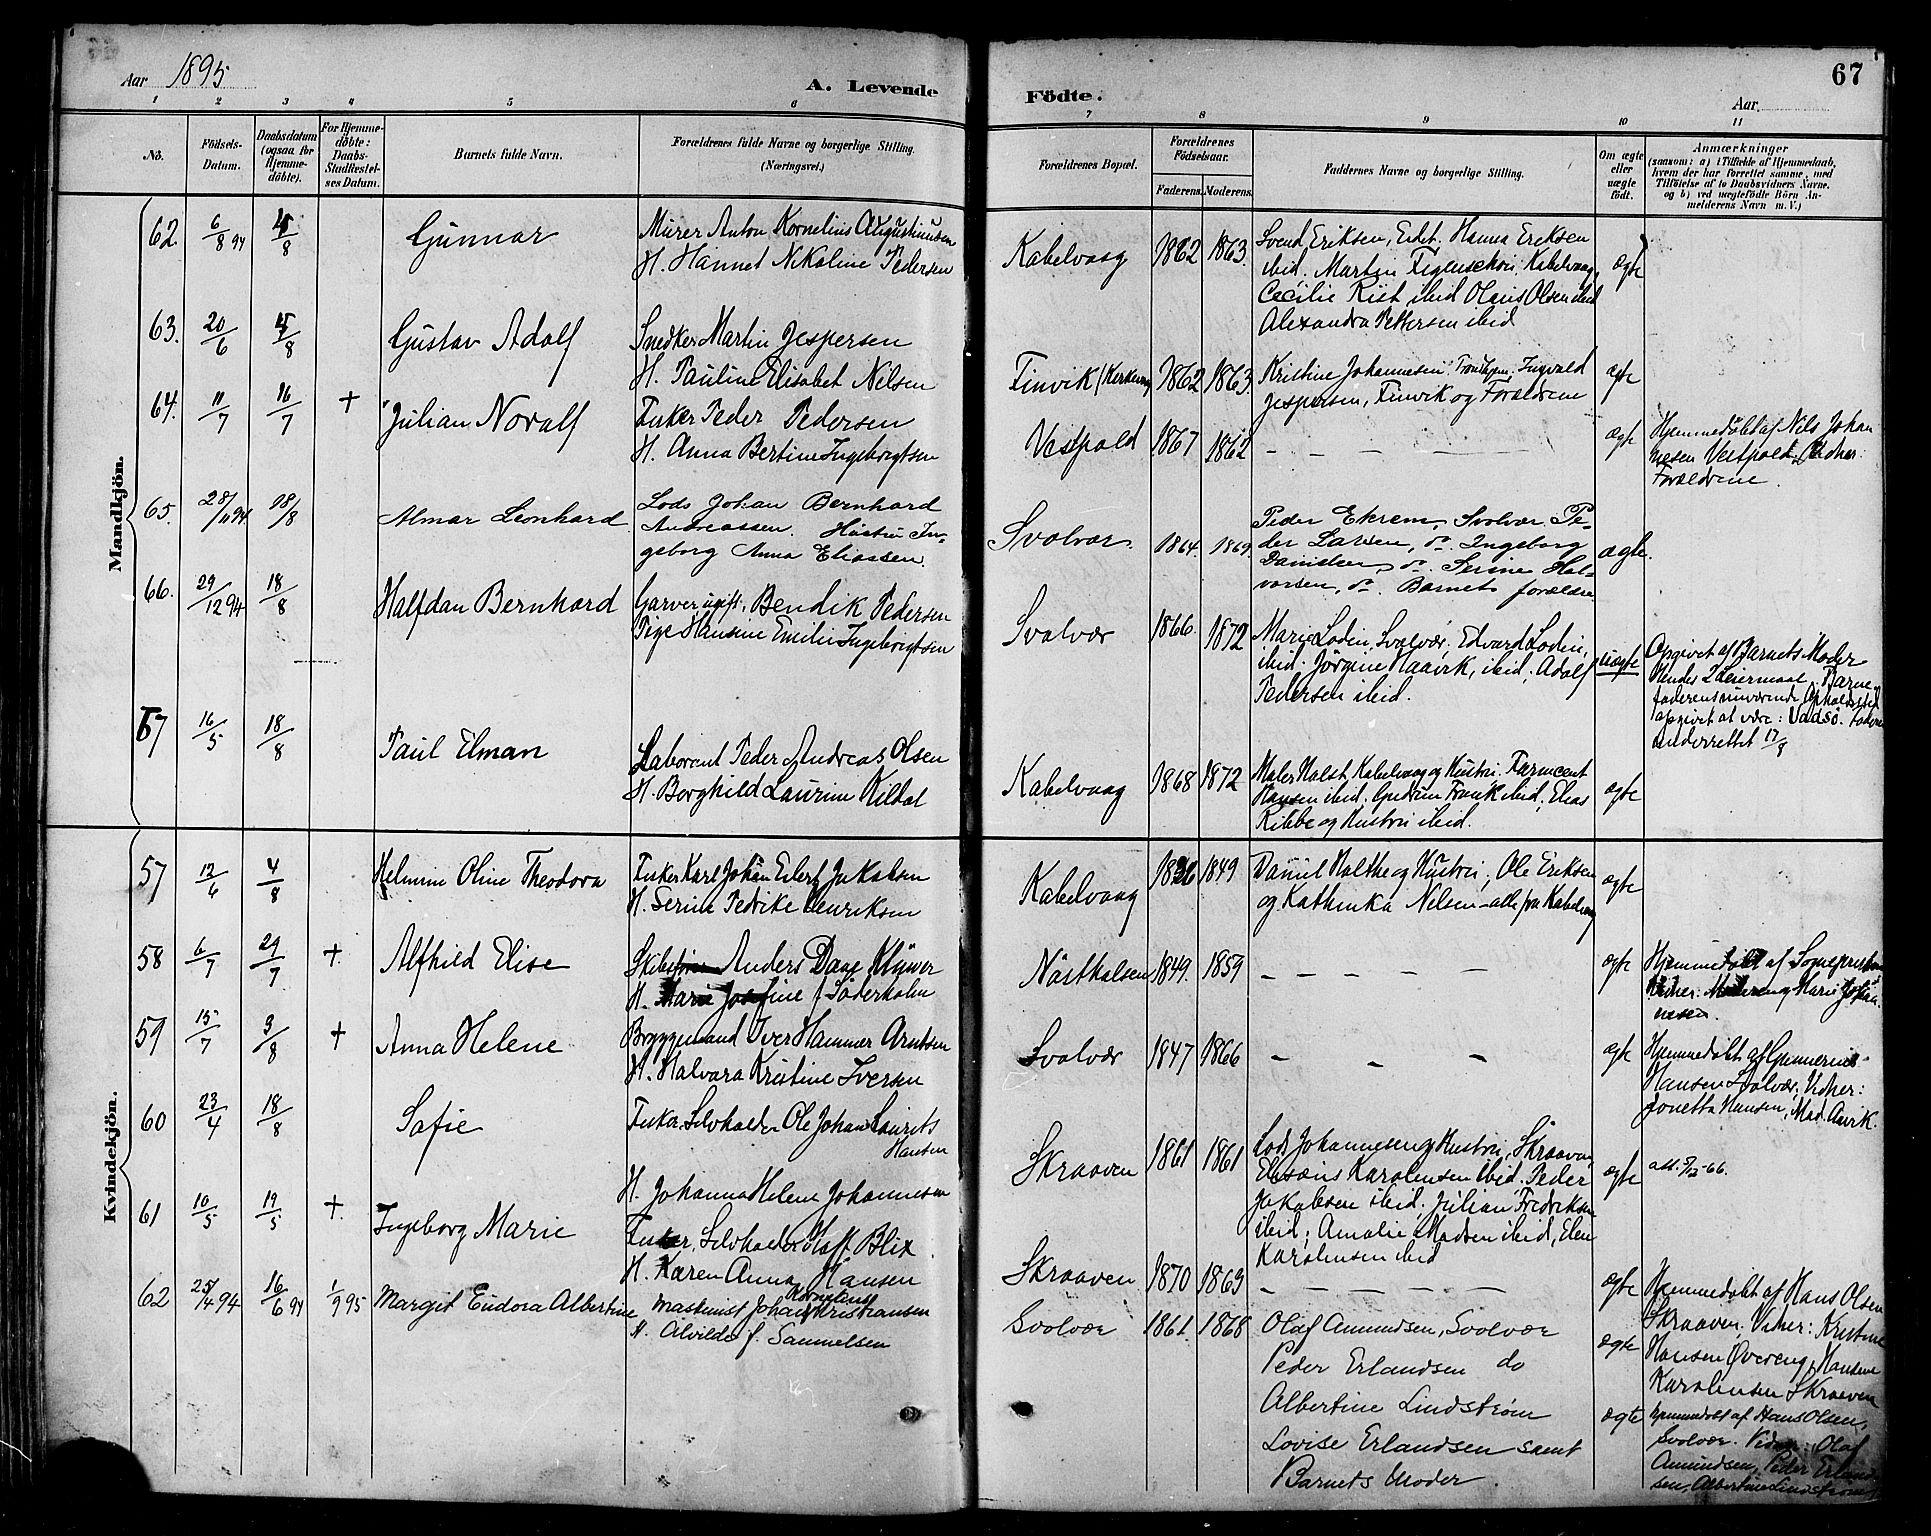 Aar 1895
A. Levende
1 2 3 4 5 6
No.
Födsels-
Datum.
Daabsdatum
(ogsaa for
Hjemme-
döbte).
For Hjemme-
döbte:
Daabs-
Stadfæstel-
ses Datum.
Barnets fulde Navn.
Forældrenes fulde Navne og borgerlige Stilling.
(Næringsvei.)
Mandkjön.
62. 6/8 94 4/8 Gunnar
Murer Anton Kornelius Augustinusen
H. Hannet Nikoline Pedersen
63. 20/6 4/8 Gustav Adolf
Snedker Martin Jespersen
H. Pauline Elisabet Nilsen
64. 11/7 16/7 + Julian Noralf
Fisker Peder Pedersen
H. Anna Bertine Ingebrigtsen
65. 28/11 94 18/8 Almar Leonhard
Lods Johan Bernhard
Andreassen. Hustru In-
geborg Anna Eliassen.
66. 29/12 94 18/8 Halfdan Bernhard
Garver, ugift, Bendik Pedersen
Pige Hansine Emilie Ingebrigtsen
67 16/5 18/8 Paul Elman
Laborant Peder Andreas Olsen
H. Borghild Laurine Kildal
Kvindekjön.
57 12/6 4/8 Helmine Oline Theodora
Fisker Karl Johan Eilert Jakobsen
H. Serine Fedrike Henriksen
58 6/7 29/7 +. Alfhild Elise
Anders Daae Klüwer
H. Marie Josefine f. Söderholm
59 15/7 3/8 + Anna Helene
Bryggemand Iver Hammer Arntsen
H. Halvara Kristine Iversen
60 23/4 18/8 Safie
Fisker, Selvholder Ole Johan Laurits
Hansen
H. Johanna Helene Johannesen
61 10/5 19/5 +. Ingeborg Marie
Fisker, Selvholder Olaff Blix
H. Karen Anna Hansen
62 25/4 94 16/6 94 1/9 95 Margit Eudora Albertine
Maskinist Johan Kristiansen
H. Alvilde f. Samuelsen
67
Födte.
Aar
7 8 9 10 11
Forældrenes Bopæl.
Forældrenes
Födselsaar.
Faderens. Moderens.
Faddernes Navne og borgerlige Stilling.
Om ægte
eller
uægte
födt.
Anmærkninger
(saasom: a) i Tilfælde af Hjemmedaab,
hvem der har forrettet samme, med
Tilföielse af to Daabsvidners Navne.
og b) ved uægtefödte Börn An-
melderens Navn m. V.)
Kabelvaag 1862 1863.
Svend Eriksen, Hanna Eriksen
ibid. Martin Kabelvaag,
Cecilie Riet ibid Olaus Olsen ibid
Alexandra Pettersen ibid
ægte
Finvik 1862 1863.
Kristine Johannesen, Ingvald
Jespersen, Finvik og Forældrene
ægte
Vestpold 1867 1862 – – – – – ægte
Hjemmedöbt af Nils Johan
nesen Vestpold. Vidner:
Forældrene.
Svolvær. 1864. 1869.
Peder Ekrem, Svolvær Pe-
der Larsen, do. Ingeborg
Danielsen do. Serine Hal-
vorsen, do. Barnets forældre
ægte.
Svolvær 1866. 1872
Marie Lodin, Svolvær, Edvard Lodin,
ibid. Jörgine Haavik, ibid, Adolf
Pedersen ibid.
uægte
Opgivet af Barnets Moder
Hendes 2 Leiermaal. Barne-
faderens nuværende Opholdssted
opgivet at være: Vadsö.
underrettet 17/8
Kabelvaag 1868 1872
Maler Holst, Kabelvaag og Hustru. Farmcent
Hansen ibid. Gudrun Frank ibid. Elias
Kibbe og Hustru ibid.
ægte
Kabelvaag 1849
Daniel Holthe og Hustru; Ole Eriksen
og Kathinka Nelsen – alle fra Kabelvaag
ægte
1849. 1859 – – – – – ægte
Hjemmedöbt af Sognepresten
Vidner: Moderen og Marie Johan-
nesen.
Svolvær 1847 1866 – – – ægte
Hjemmedöbt af
Hansen Svolvær, Vidner:
Jonetta Hansen, Mad. Anvik.
Skraaven 1861 1861
Lods Johannesen og Hustru, Skraaven,
Karolensen ibid. Peder
Jakobsen ibid. Julian Fredriksen
ibid; Amalie Madsen ibid, Elen
Karolensen ibid
ægte
Skraaven 1870 1863 – – – – – ægte
Hjemmedöbt af Hans Olsen
Skraaven. Vidner: Kristine
Hansen Hansine
Karolensen Skraaven
Svolvær 1861. 1868
Olaf Amundsen, Svolvær
Peder Erlandsen do
Albertine Lindstrøm
Lovise Erlandsen samt
Barnets Moder.
ægte
ægte
Hjemmedöbt af Hans Olsen,
Svolvær. Vidner: Olaf
Amundsen, Peder Erland-
sen, Albertine Lindstrøm